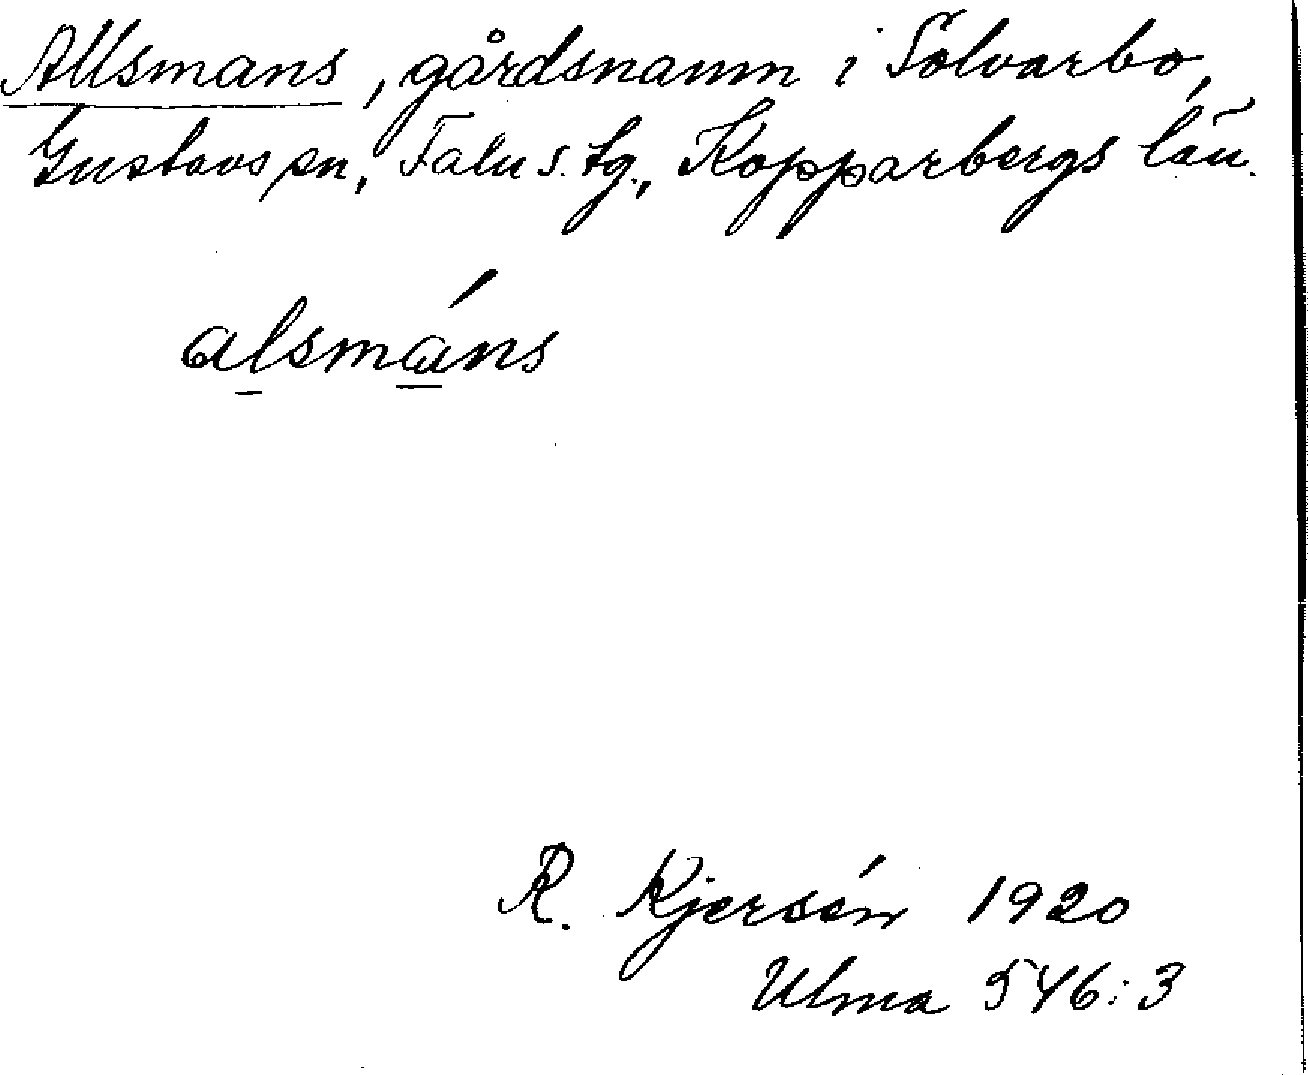 Allsmans, gårdsnamn i Solvarbo,
Gustavs sn, Falu s. tg., Kopparbergs län.
alsmáns
R. Kjersén 1920
Ulma 546:3